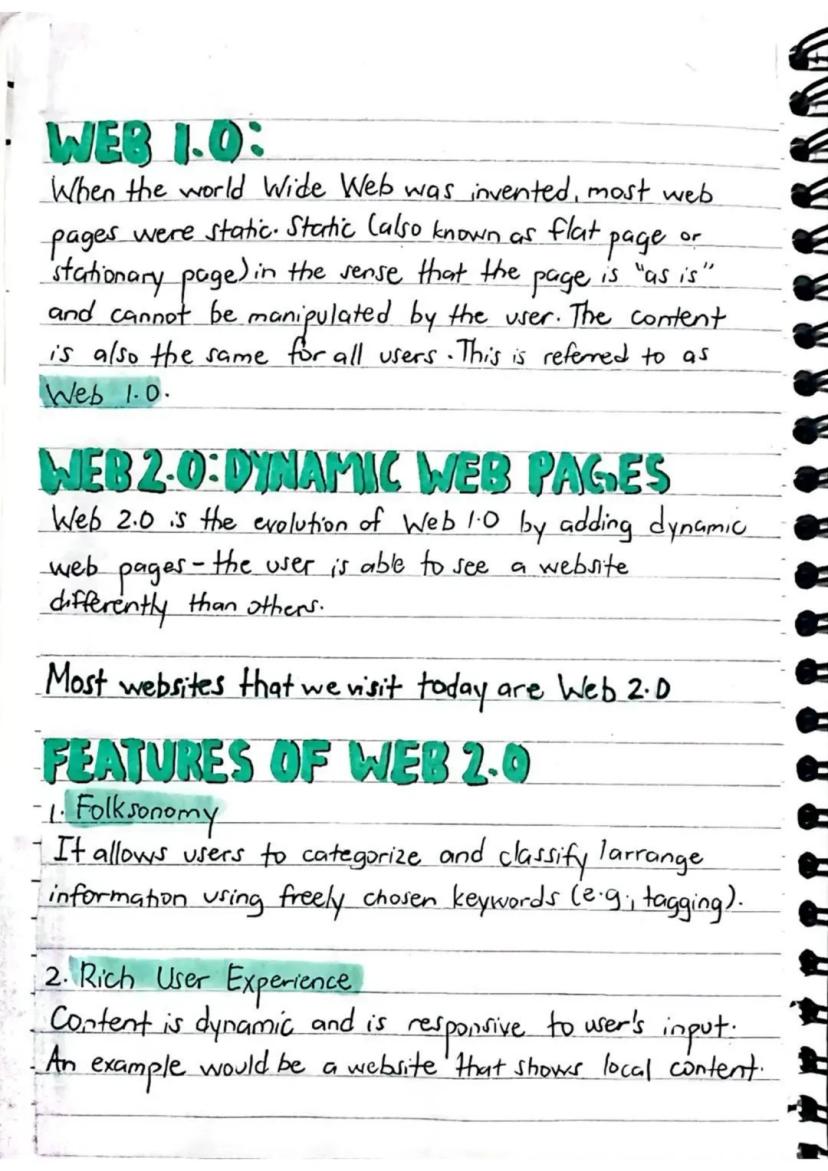 WEB 1.0:
When the world Wide Web was invented, most web
pages were static. Static (also known as flat page or
stationary page) in the sense that the page is "as is"
and cannot be manipulated by the user. The content
is also the same for all users. This is referred to as
Web 1.0.
WEB 2.0: DYNAMIC WEB PAGES
Web 2.0 is the evolution of Web 1.0 by adding dynamic
web pages - the user is able to see a website
differently than others.
Most websites that we visit today are Web 2.0
FEATURES OF WEB 2.0
1. Folksonomy
It allows users to categorize and classify /arrange
information using freely chosen keywords (e.g., tagging).
2. Rich User Experience
Content is dynamic and is responsive to user's input.
An example would be a website that shows local content.